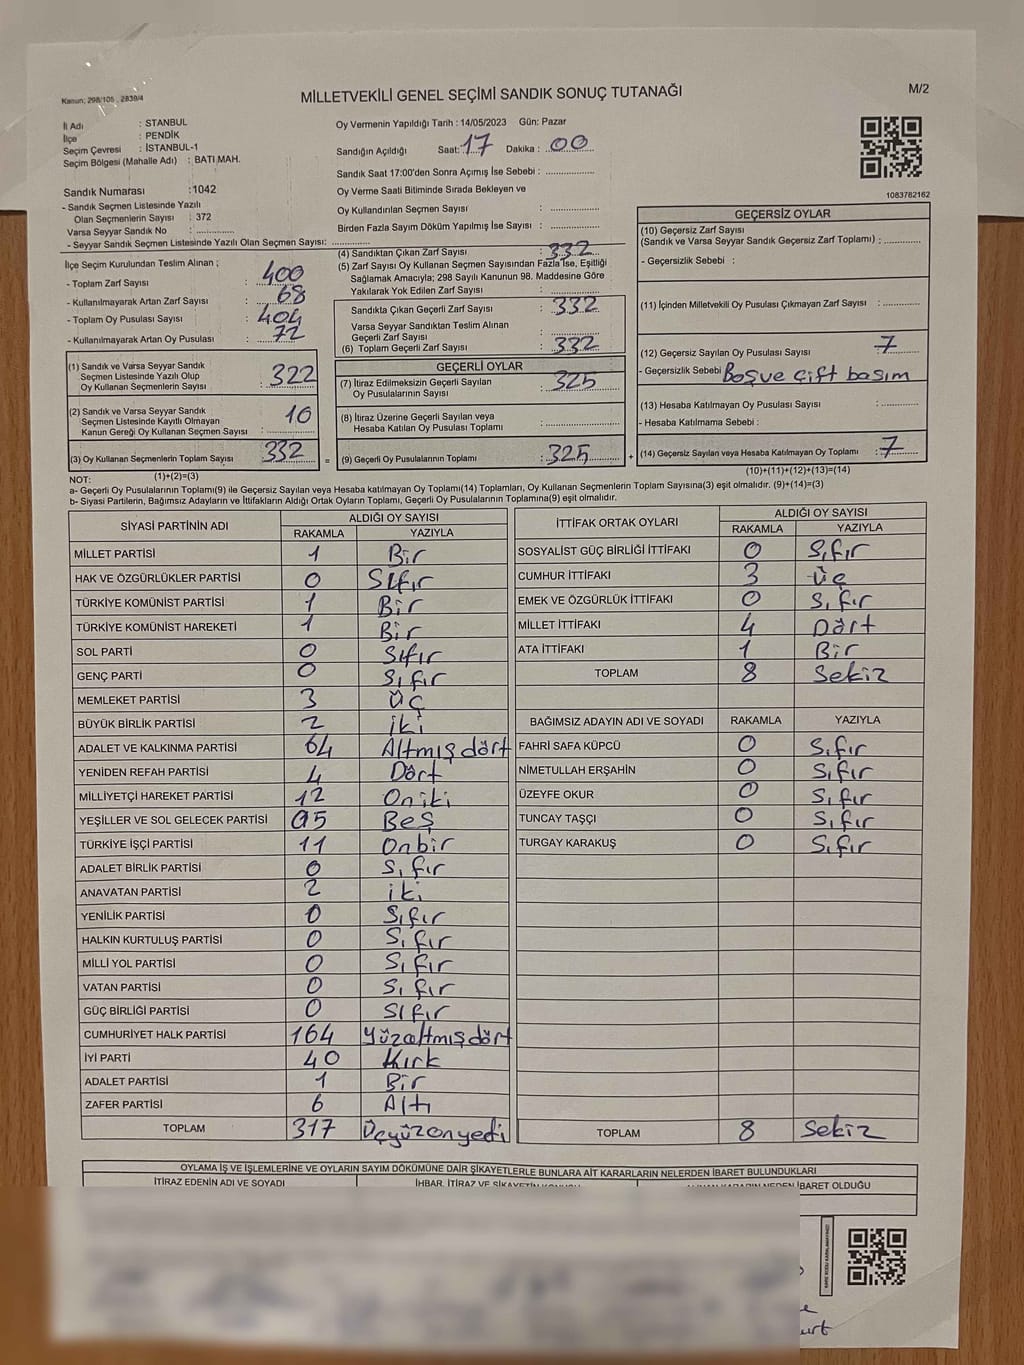 Kanun; 298/105 , 2839/4
MİLLETVEKİLİ GENEL SEÇİMİ SANDIK SONUÇ TUTANAĞI
M/2
İl Adı : STANBUL
İlçe : PENDİK
Seçim Çevresi : İSTANBUL-1
Seçim Bölgesi (Mahalle Adı) : BATI MAH.
Sandık Numarası :1042
- Sandık Seçmen Listesinde Yazılı
Olan Seçmenlerin Sayısı : 372
Varsa Seyyar Sandık No :
- Seyyar Sandık Seçmen Listesinde Yazılı Olan Seçmen Sayısı:
Oy Vermenin Yapıldığı Tarih : 14/05/2023 Gün: Pazar
Sandığın Açıldığı Saat: 17 Dakika : 00
Sandık Saat 17:00'den Sonra Açımış İse Sebebi :
Oy Verme Saati Bitiminde Sırada Bekleyen ve
Oy Kullandırılan Seçmen Sayısı :
Birden Fazla Sayım Döküm Yapılmış İse Sayısı :
1083782162
İlçe Seçim Kurulundan Teslim Alınan ;
- Toplam Zarf Sayısı : 400
- Kullanılmayarak Artan Zarf Sayısı : 68
- Toplam Oy Pusulası Sayısı : 404
- Kullanılmayarak Artan Oy Pusulası : 72
(1) Sandık ve Varsa Seyyar Sandık
Seçmen Listesinde Yazılı Olup
Oy Kullanan Seçmenlerin Sayısı : 322
(2) Sandık ve Varsa Seyyar Sandık
Seçmen Listesinde Kayıtlı Olmayan
Kanun Gereği Oy Kullanan Seçmen Sayısı : 10
(3) Oy Kullanan Seçmenlerin Toplam Sayısı : 332
(1)+(2)=(3)
(4) Sandıktan Çıkan Zarf Sayısı : 332
(5) Zarf Sayısı Oy Kullanan Seçmen Sayısından Fazla İse, Eşitliği
Sağlamak Amacıyla; 298 Sayılı Kanunun 98. Maddesine Göre
Yakılarak Yok Edilen Zarf Sayısı :
Sandıkta Çıkan Geçerli Zarf Sayısı : 332
Varsa Seyyar Sandıktan Teslim Alınan
Geçerli Zarf Sayısı :
(6) Toplam Geçerli Zarf Sayısı : 332
GEÇERLİ OYLAR
(7) İtiraz Edilmeksizin Geçerli Sayılan
Oy Pusulalarının Sayısı : 325
(8) İtiraz Üzerine Geçerli Sayılan veya
Hesaba Katılan Oy Pusulası Toplamı :
= (9) Geçerli Oy Pusulalarının Toplamı : 325 +
GEÇERSİZ OYLAR
(10) Geçersiz Zarf Sayısı
(Sandık ve Varsa Seyyar Sandık Geçersiz Zarf Toplamı) :
- Geçersizlik Sebebi :
(11) İçinden Milletvekili Oy Pusulası Çıkmayan Zarf Sayısı :
(12) Geçersiz Sayılan Oy Pusulası Sayısı : 7
- Geçersizlik Sebebi : Boş ve çift basım
(13) Hesaba Katılmayan Oy Pusulası Sayısı :
- Hesaba Katılmama Sebebi :
(14) Geçersiz Sayılan veya Hesaba Katılmayan Oy Toplamı : 7
(10)+(11)+(12)+(13)=(14)
NOT:
a- Geçerli Oy Pusulalarının Toplamı(9) ile Geçersiz Sayılan veya Hesaba katılmayan Oy Toplamı(14) Toplamları, Oy Kullanan Seçmenlerin Toplam Sayısına(3) eşit olmalıdır. (9)+(14)=(3)
b- Siyasi Partilerin, Bağımsız Adayların ve İttifakların Aldığı Ortak Oyların Toplamı, Geçerli Oy Pusulalarının Toplamına(9) eşit olmalıdır.
SİYASİ PARTİNİN ADI ALDIĞI OY SAYISI
RAKAMLA YAZIYLA
MİLLET PARTİSİ 1 Bir
HAK VE ÖZGÜRLÜKLER PARTİSİ 0 Sıfır
TÜRKİYE KOMÜNİST PARTİSİ 1 Bir
TÜRKİYE KOMÜNİST HAREKETİ 1 Bir
SOL PARTİ 0 Sıfır
GENÇ PARTİ 0 Sıfır
MEMLEKET PARTİSİ 3 Üç
BÜYÜK BİRLİK PARTİSİ 2 iki
ADALET VE KALKINMA PARTİSİ 64 Altmış dört
YENİDEN REFAH PARTİSİ 4 Dört
MİLLİYETÇİ HAREKET PARTİSİ 12 Oniki
YEŞİLLER VE SOL GELECEK PARTİSİ 05 Beş
TÜRKİYE İŞÇİ PARTİSİ 11 Onbir
ADALET BİRLİK PARTİSİ 0 Sıfır
ANAVATAN PARTİSİ 2 iki
YENİLİK PARTİSİ 0 Sıfır
HALKIN KURTULUŞ PARTİSİ 0 Sıfır
MİLLİ YOL PARTİSİ 0 Sıfır
VATAN PARTİSİ 0 Sıfır
GÜÇ BİRLİĞİ PARTİSİ 0 Sıfır
CUMHURİYET HALK PARTİSİ 164 Yüzaltmışdört
İYİ PARTİ 40 Kırk
ADALET PARTİSİ 1 Bir
ZAFER PARTİSİ 6 Altı
TOPLAM 317 Üçyüzonyedi
İTTİFAK ORTAK OYLARI ALDIĞI OY SAYISI
RAKAMLA YAZIYLA
SOSYALİST GÜÇ BİRLİĞİ İTTİFAKI 0 Sıfır
CUMHUR İTTİFAKI 3 üç
EMEK VE ÖZGÜRLÜK İTTİFAKI 0 Sıfır
MİLLET İTTİFAKI 4 Dört
ATA İTTİFAKI 1 Bir
TOPLAM 8 Sekiz
BAĞIMSIZ ADAYIN ADI VE SOYADI RAKAMLA YAZIYLA
FAHRİ SAFA KÜPCÜ 0 Sıfır
NİMETULLAH ERŞAHİN 0 Sıfır
ÜZEYFE OKUR 0 Sıfır
TUNCAY TAŞÇI 0 Sıfır
TURGAY KARAKUŞ 0 Sıfır
TOPLAM 8 Sekiz
OYLAMA İŞ VE İŞLEMLERİNE VE OYLARIN SAYIM DÖKÜMÜNE DAİR ŞİKAYETLERLE BUNLARA AİT KARARLARIN NELERDEN İBARET BULUNDUKLARI
İTİRAZ EDENİN ADI VE SOYADI İHBAR, İTİRAZ VE ŞİKAYETİN KONUSU ALINAN KARARIN NEDEN İBARET OLDUĞU